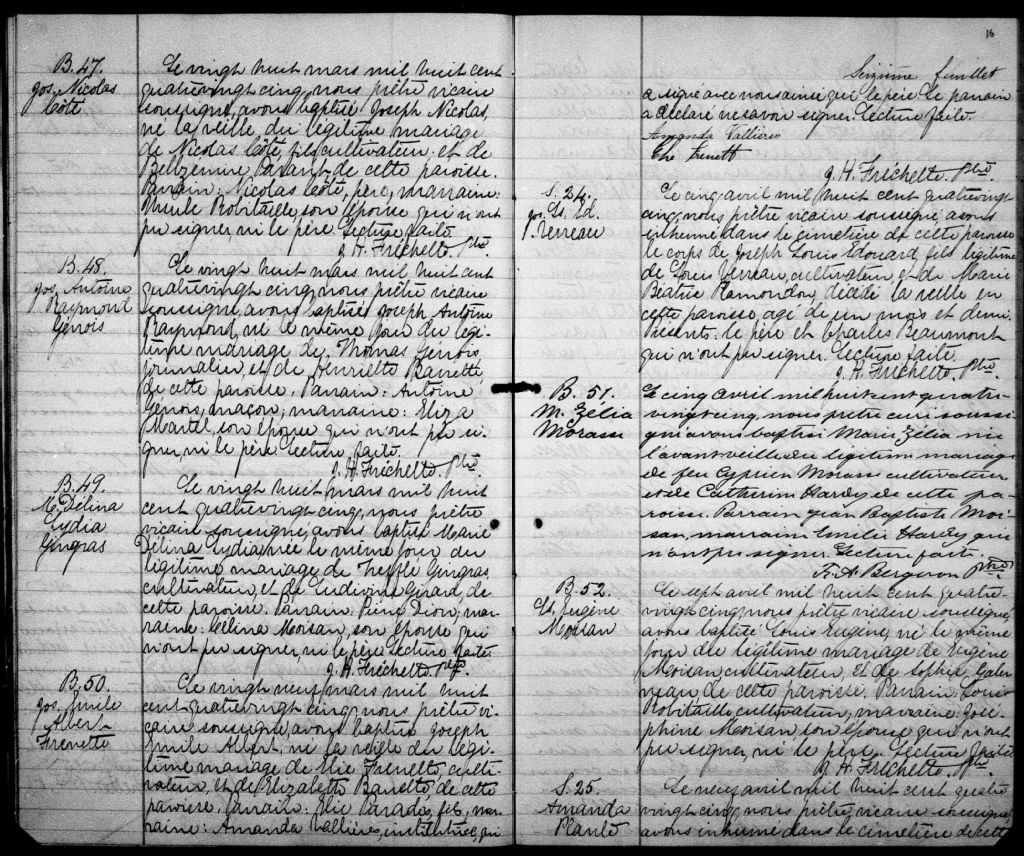 B. 47.
Jos. Nicolas
Côté
Le vingt huit mars mil huit cent
quatrevingt cinq, nous prêtre vicaire
soussigné, avons baptisé Joseph Nicolas,
né la veille, du légitime mariage
de Nicolas Côté, fils cultivateur et de
Belzemire Savard de cette paroisse.
Parrain: Nicolas Côté, père, marraine:
Robitaille, son épouse qui n'ont
pu signer, ni le père. Lecture faite
J. H. Fréchette Ptre
B. 48.
Jos. Antoine
Raymond
Genois
Le vingt huit mars mil huit cent
quatrevingt cinq, nous prêtre vicaire
soussigné, avons baptisé Joseph Antoine
Raymond, né le même jour du légi-
time mariage de Thomas Génois,
journalier, et de Henriette Barrette,
de cette paroisse. Parrain: Antoine
Genois, maçon, marraine: Eliza
Martel, son épouse qui n'ont pu si-
gner, ni le père. Lecture faite.
J. H. Fréchette Ptre
B. 49.
M. Délina
Lydia
Gingras
Le vingt huit mars mil huit
cent quatrevingt cinq, nous prêtre
vicaire soussigné, avons baptisé Marie
Délina Lydia, née le même jour du
légitime mariage de Treffle Gingras,
cultivateur, et de Ludivine Girard, de
cette paroisse. Parrain: Pierre Dion; mar-
raine: Célina Moisan, son épouse qui
n'ont pu signer, ni le père. Lecture faite.
J. H. Fréchette Ptre
B. 50.
Jos. Emile
Albert
Frenette
Le vingt neuf mars mil huit
cent quatrevingt cinq, nous prêtre vi-
caire soussigné, avons baptisé Joseph
Emile Albert, né la veille du légi-
time mariage de Elie Frenette, culti-
vateur, et de Elizabeth Barrette, de cette
paroisse. Parrain: Elie Paradis, fils, mar-
raine: Amanda Vallière, institutrice, qui
16
Seizième feuillet
a signé avec nous ainsi que le père. Le parrain
a déclaré ne savoir signer. Lecture faite.
Amanda Vallières
Frenett
J. H. Fréchette Ptre
S. 24.
Jos. Ls. Ed.
Verreau
Le cinq avril mil huit cent quatrevingt
cinq, nous prêtre vicaire soussigné, avons
inhumé dans le cimetière de cette paroisse
le corps de Joseph Louis Edouard, fils légitime
de Louis Verreau, cultivateur, et de Marie
Béatrix Ramondon, décédé la veille en
cette paroisse, agé de un mois et demi.
Présents: le père et Charles Beaumont
qui n'ont pu signer. Lecture faite.
J. H. Fréchette Ptre
B. 51.
M. Zélia
Morasse
Le cinq avril mil huit cent quatre-
vingt cinq, nous prêtre curé soussi-
gné avons baptisé Marie Zélia née
l'avant veille du légitime mariage
de feu Cyprien Morasse cultivateur
et de Catherine Hardy de cette pa-
roisse. Parrain Jean Baptiste Moi-
san, marraine Emilie Hardy qui
n'ont pu signer. Lecture faite.
F. A. Bergeron Ptre
B. 52.
Ls. Eugène
Moisan
Le sept avril mil huit cent quatre-
vingt cinq nous prêtre vicaire soussigné,
avons baptisé Louis Eugène, né le même
jour du légitime mariage de Eugène
Moisan, cultivateur, et de Sophie Gaber-
neau de cette paroisse. Parrain: Louis
Robitaille cultivateur, marraine: José-
phine Moisan, son épouse qui n'ont
pu signer, ni le père. Lecture faite
J. H. Fréchette Ptre
S. 25.
Amanda
Planté
Le avril mil huit cent quatre
vingt cinq, nous prêtre vicaire soussigné,
avons inhumé dans le cimetière de cette